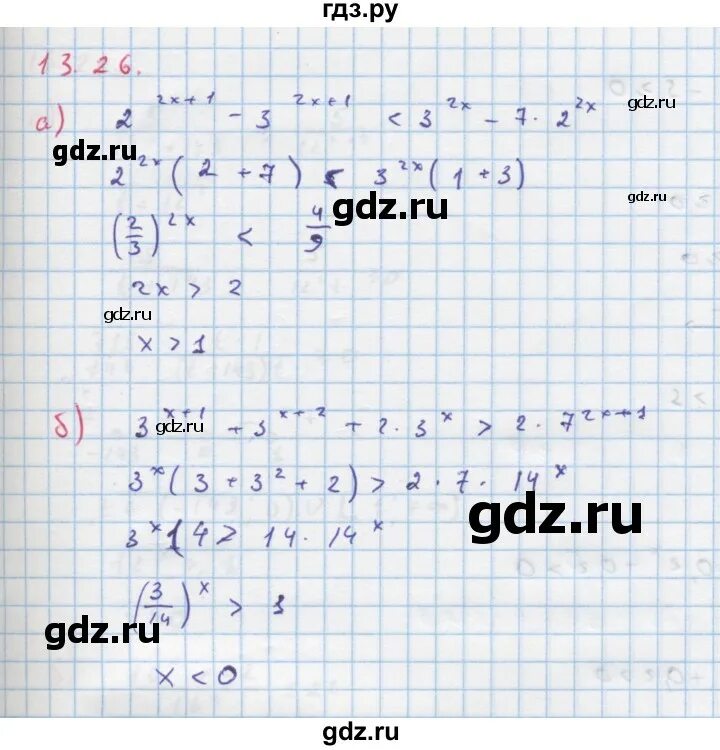 гдз.ру
13.26.
а) 2^{2x+1} - 3^{2x+1} < 3^{2x} - 7 · 2^{2x}
gdz.ru
gdz.ru
2^{2x} (2 + 7) < 3^{2x} (1 + 3)
gdz.ru
gdz.ru
(2/3)^{2x} < 4/9
2x > 2
gdz.ru
x > 1
б) 3^{x+1} + 3^{x+2} + 2 · 3^x > 2 · 7^{2x+1}
gdz.ru
3^x (3 + 3^2 + 2) > 2 · 7 · 14^x
gdz.ru
3^x 14 > 14 · 14^x
(3/14)^x > 1
gdz.ru
x < 0
gdz.ru